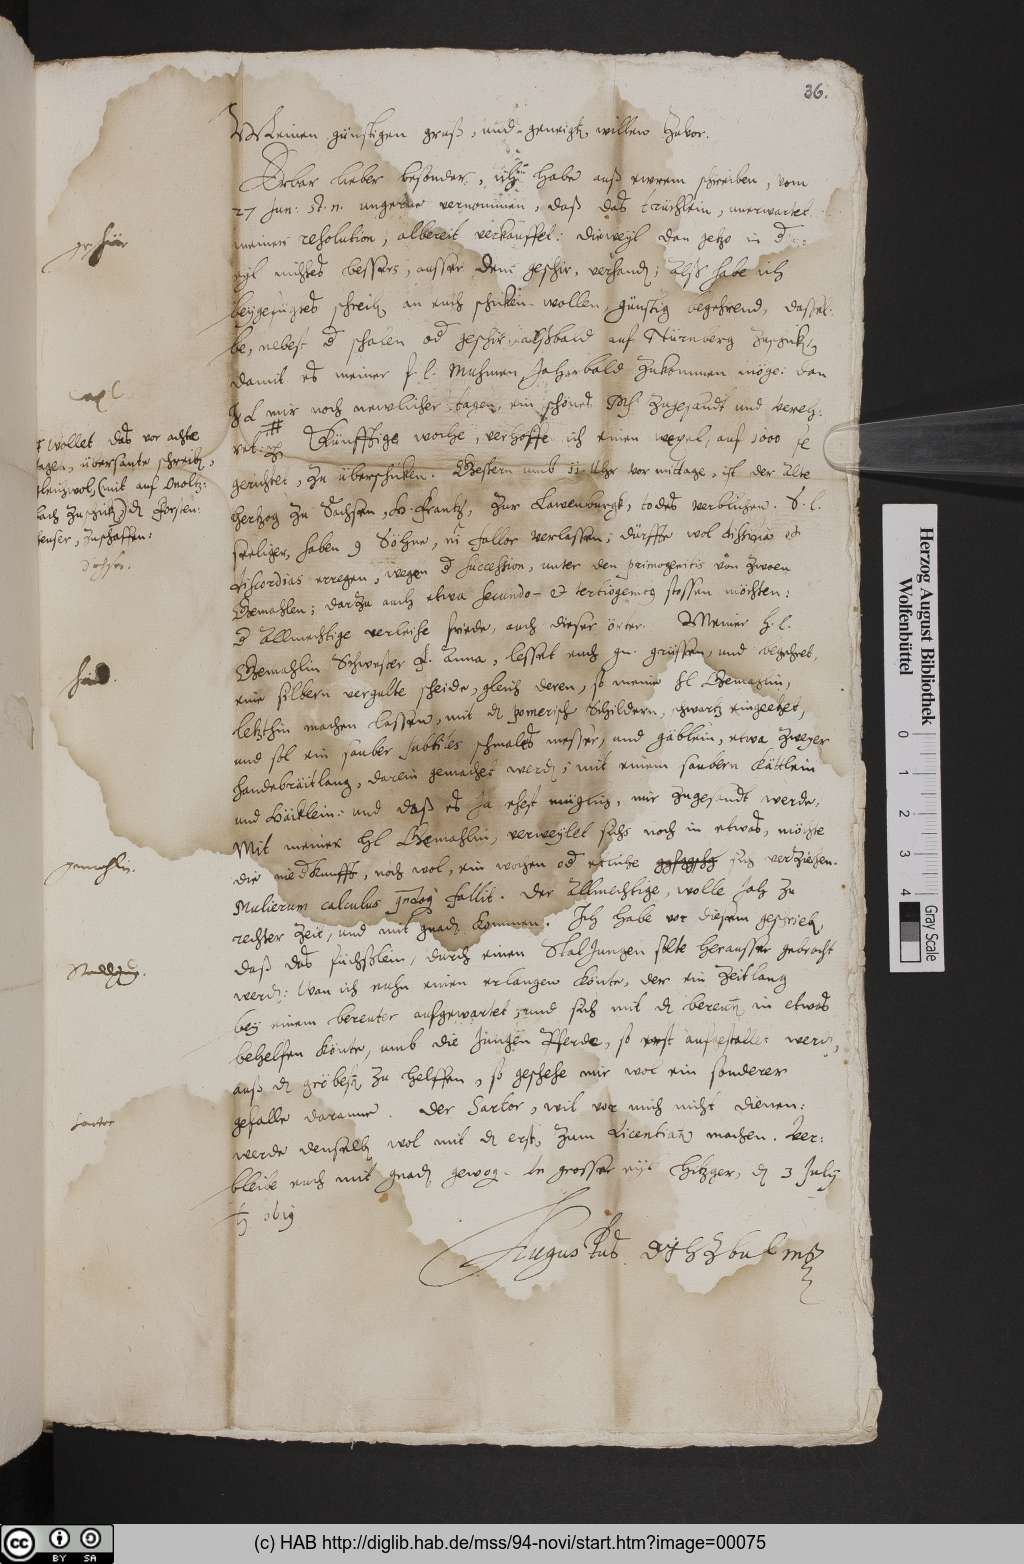 36.
Meinen günstigen gruß, und geneigt. willen zuvor.
Erbar lieber besonder, ich habe auß ewrem schreiben, vom
27 Jun: st. n. ungerne vernommen, daß das trüchlein, unerwartet
meiner resolution, albereit verkauffet: dieweyl dan jetzo in d
eyl nichtes bessers, ausser dem geschir, verhand; Alß habe ich
beygefügtes schreib. an euch schicken wollen, günstig begehrend, dassel-
be, nebest d schalen od geschir alßbald auf Nürnberg zuschick.
damit es meiner f. l. Muhmen zukommen möge: dan
J L mir noch newlicher tagen, ein schönes zugesandt und vereh-
ret: Künfftige woche, verhoffe ich einen wexel, auf 1000
gerichtet, zu überschicken. Gestern umb 11 Uhr vor mittage, ist der Alte
Hertzog zu Sachsen, H. Frantz, zur Lawenburgk, todes verblichen. S. l.
seeliger, haben 9 Söhne, verlassen; dürffte wol et
discordias erregen, wegen d succession, unter den primogenitis von zwoen
Gemahlen; darzu auch etwa secundo- et tertiogenitos stossen möchten:
d Allmechtige verleihe friede, auch dieser örter. Meiner h. l.
Gemahlin Schwester f. Anna, lesset euch gn. grüssen, und begehret,
eine silbern vergulte scheide, gleich deren, so meine hl Gemahlin,
letzthin machen lassen, mit d pomerisch Schildern, schwartz eingeetzet,
und sol ein sauber subtiles schmales messer, und gäblein, etwa zweyer
handebräit lang, darein gemachet werd; mit einem saubern kättlein
und häcklein: und daß es ja ehest müglich, mir zugesandt werde,
Mit meiner hl Gemahlin, verweylet sichs noch in etwas, möchte
die niedkunfft, noch wol, ein wochen od etliche sich verziehen.
Mulierum calculus fallit. Der Allmechtige, wolle solch zu
rechter zeit, und mit gnad kommen. Ich habe vor diesem geschrieb,
daß das füchslein, durch einen Stal Jungen solte heraußer gebracht
werd: Wan ich nuhn einen erlangen könte, der ein zeitlang
bey einem bereuter aufgewartet, und sich mit d bereut. in etwas
behelfen könte, umb die jungen Pferde, so erst aufgestallet werd,
auß d gröbest zu helffen, so geschehe mir wol ein sonderer
gefalle daranne. Der Sartor, wil vor mich nicht dienen:
werde denselb. wol mit d erst, zum Licentiat machen. Ver-
bleibe euch mit gnad gewog. In grosser eyl Hitzger, d 3 July
obig
Augustus
geschir
wexel
# wollet das vor achte
tagen, übersante schreib,
gleichwol, (mit auf Onoltz-
bach zuschick) d Forsten-
heuser, zuschaffen:
gemahlin.
Stalljung.
Sartor
Herzog August Bibliothek
Wolfenbüttel
0 1 2 3 4
Gray Scale
cc BY SA
(c) HAB http://diglib.hab.de/mss/94-novi/start.htm?image=00075